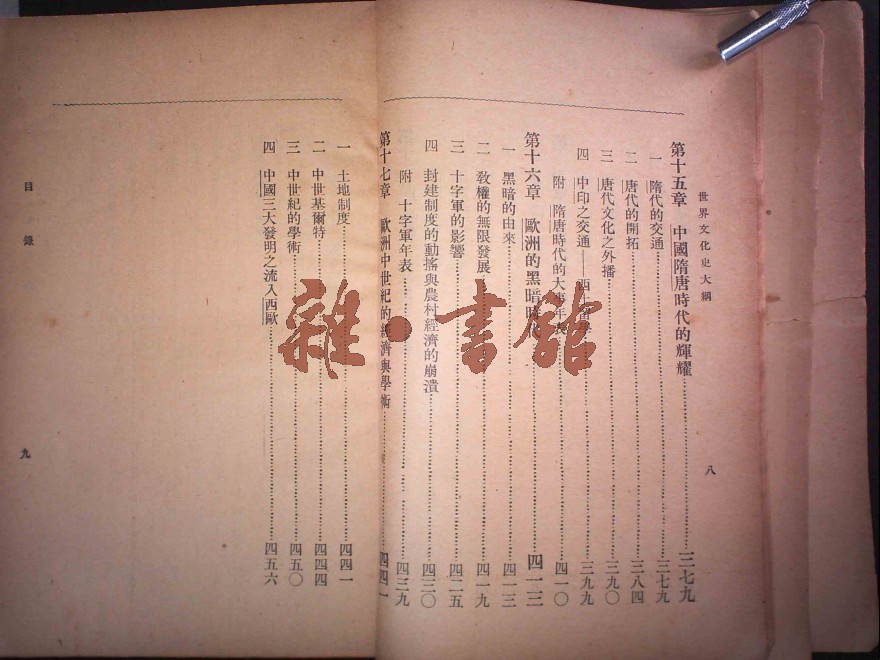 世界文化史大綱
八
第十五章 中國隋唐時代的輝耀……三七九
一 隋代的交通……三七九
二 唐代的開拓……三八四
三 唐代文化之外播……三九〇
四 中印之交通——西……三九九
附 隋唐時代的大事年表……四一〇
第十六章 歐洲的黑暗時代……四一三
一 黑暗的由來……四一三
二 教權的無限發展……四一九
三 十字軍的影響……四二五
四 封建制度的動搖與農村經濟的崩潰……四三〇
附 十字軍年表……四三九
第十七章 歐洲中世紀的經濟與學術……四四一
一 土地制度……四四一
二 中世基爾特……四四四
三 中世紀的學術……四五〇
四 中國三大發明之流入西歐……四五六
目錄
九
雜·書館